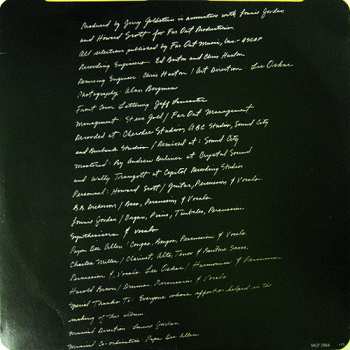 Produced by Jerry Goldstein in association with Lonnie Jordan
and Howard Scott for Far Out Productions
All selections published by Far Out Music, Inc. ASCAP
Recording Engineers: Ed Barton and Chris Huston
Remixing Engineer: Chris Huston / Art Direction: Lee Oskar
Photography: Alan Bergman
Front Cover Lettering: Jeff Lancaster
Management: Steve Gold / Far Out Management
Recorded at Cherokee Studios, ABC Studios, Sound City
and Burbank Studios / Remixed at: Sound City
Mastered: By Andrew Berliner at Crystal Sound
and Wally Traugott at Capitol Recording Studios
Personnel: Howard Scott / Guitar, Percussion & Vocals
B.B. Dickerson / Bass, Percussion & Vocals
Lonnie Jordan / Organ, Piano, Timbales, Percussion
Synthesizers & vocals
Papa Dee Allen / Congas, Bongos, Percussion & Vocals
Charles Miller / Clarinet, Alto, Tenor & Baritone Saxes.
Percussion & Vocals Lee Oskar / Harmonica & Percussion
Harold Brown / Drums, Percussion & Vocals
Special Thanks To: Everyone whose support helped in the
making of this album
Musical Direction: Lonnie Jordan
Musical Co-ordination: Papa Dee Allen